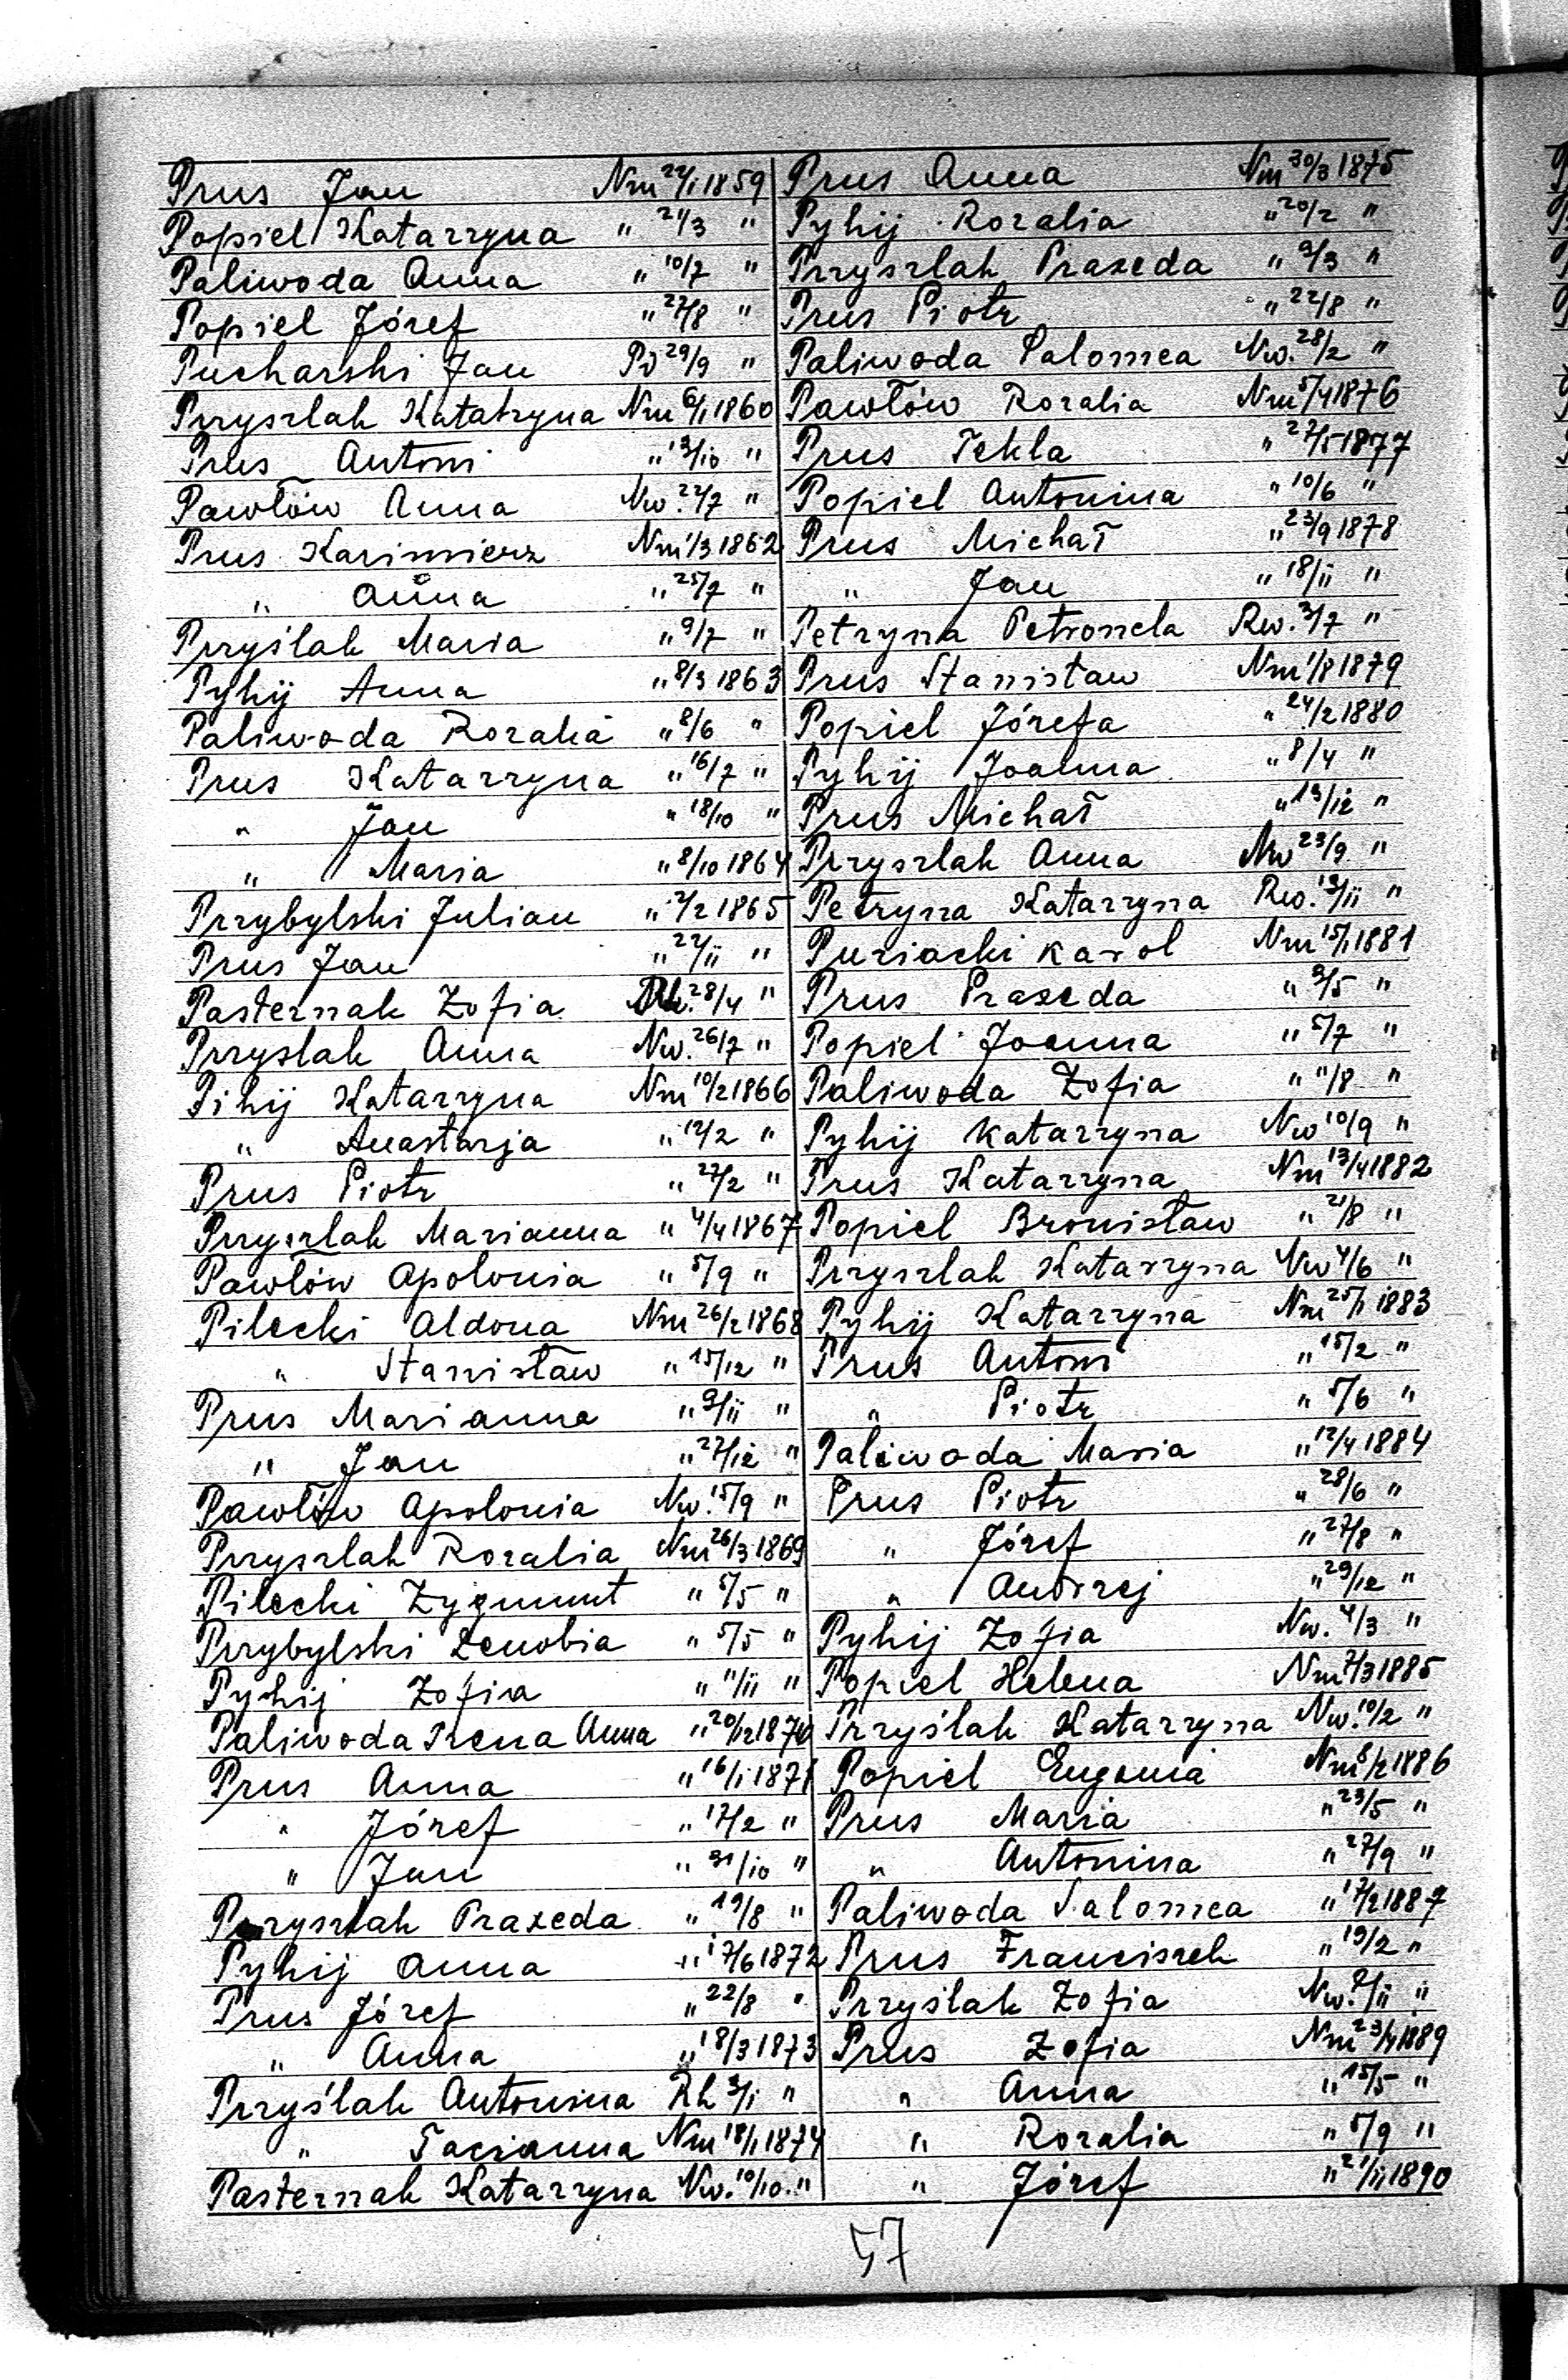 Prus Jan Nm 22/1 1859
Popiel Katarzyna " 21/3 "
Paliwoda Anna " 10/7 "
Popiel Józef " 27/8 "
Pucharski Jan Pd 29/9 "
Przyszlak Katatrzyna Nm 6/1 1860
Prus Antoni " 13/10 "
Pawłów Anna Nw. 22/7 "
Prus Kazimierz Nm 1/3 1862
" Anna " 25/7 "
Przyślak Maria " 9/7 "
Pyhij Anna " 8/3 1863
Paliwoda Rozalia " 8/6 "
Prus Katarzyna " 16/7 "
" Jan " 18/10 "
" Maria " 8/10 1864
Przybylski Julian " 2/2 1865
Prus Jan " 22/11 "
Pasternak Zofia 28/4 "
Przyslak Anna Nw. 26/7 "
Pihij Katarzyna Nm 10/2 1866
" Anastazja " 12/2 "
Prus Piotr " 27/2 "
Przyszlak Marianna " 4/4 1867
Pawłów Apolonia " 5/9 "
Pilecki Aldona Nm 26/2 1868
" Stanisław " 15/12 "
Prus Marianna " 9/11 "
" Jan " 27/12 "
Pawłów Apolonia Nw. 15/9 "
Przyszlak Rozalia Nm 26/3 1869
Pilecki Zygmunt " 5/5 "
Przybylski Zenobia " 5/5 "
Pyhij Zofia " 11/11 "
Paliwoda Irena Anna " 20/12 1870
Prus Anna " 16/1 1871
" Józef " 17/2 "
" Jan " 31/10 "
Przyszlak Praxeda " 19/8 "
Pyhij Anna " 17/6 1872
Prus Józef " 22/8 "
" Anna " 18/3 1873
Przyślak Antonina Rh 3/1 "
" Tacianna Nm 18/1 1874
Pasternak Katarzyna Nw. 10/10. "
Prus Anna Nm 30/3 1875
Pyhij Rozalia " 20/2 "
Przyszlak Praxeda " 9/3 "
Prus Piotr " 22/8 "
Paliwoda Salomea Nw. 28/2 "
Pawłów Rozalia Nm 5/4 1876
Prus Tekla " 27/5 1877
Popiel Antonina " 10/6 "
Prus Michał " 23/9 1878
" Jan " 18/11 "
Petryna Petronela Rw. 3/7 "
Prus Stanisław Nm 1/8 1879
Popiel Józefa " 24/2 1880
Pyhij Joanna " 8/4 "
Prus Michał " 13/12 "
Przyszlak Anna Nw 23/9 "
Petryna Katarzyna Rw. 13/11 "
Puziacki Karol Nm 15/1 1881
Prus Praxeda " 9/5 "
Popiel Joanna " 5/7 "
Paliwoda Zofia " 11/8 "
Pyhij Katarzyna Nw 10/9 "
Prus Katarzyna Nm 13/4 1882
Popiel Bronisław " 21/8 "
Przyszlak Katarzyna Nw 4/6 "
Pyhij Katarzyna Nm 25/1 1883
Prus Antoni " 15/2 "
" Piotr " 5/6 "
Paliwoda Maria " 12/4 1884
Prus Piotr " 28/6 "
" Józef " 27/8 "
" Andrzej " 29/12 "
Pyhij Zofia Nw. 4/3 "
Popiel Helena Nm 7/3 1885
Przyślak Katarzyna Nw. 10/2 "
Popiel Eugenia Nm 8/2 1886
Prus Maria " 23/5 "
" Antonina " 27/9 "
Paliwoda Salomea " 17/2 1887
Prus Franciszek " 19/2 "
Przyślak Zofia Nw. 9/11 "
Prus Zofia Nm 23/4 1889
" Anna " 15/5 "
" Rozalia " 5/9 "
" Józef " 21/11 1890
57